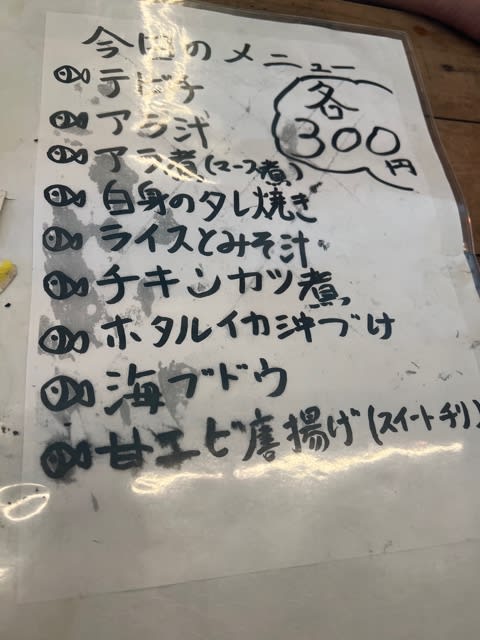 今回のメニュー
各300円
テビチ
アラ汁
アラ煮(マース煮)
白身のタレ焼き
ライスとみそ汁
チキンカツ煮
ホタルイカ沖づけ
海ブドウ
甘エビ唐揚げ(スイートチリ)